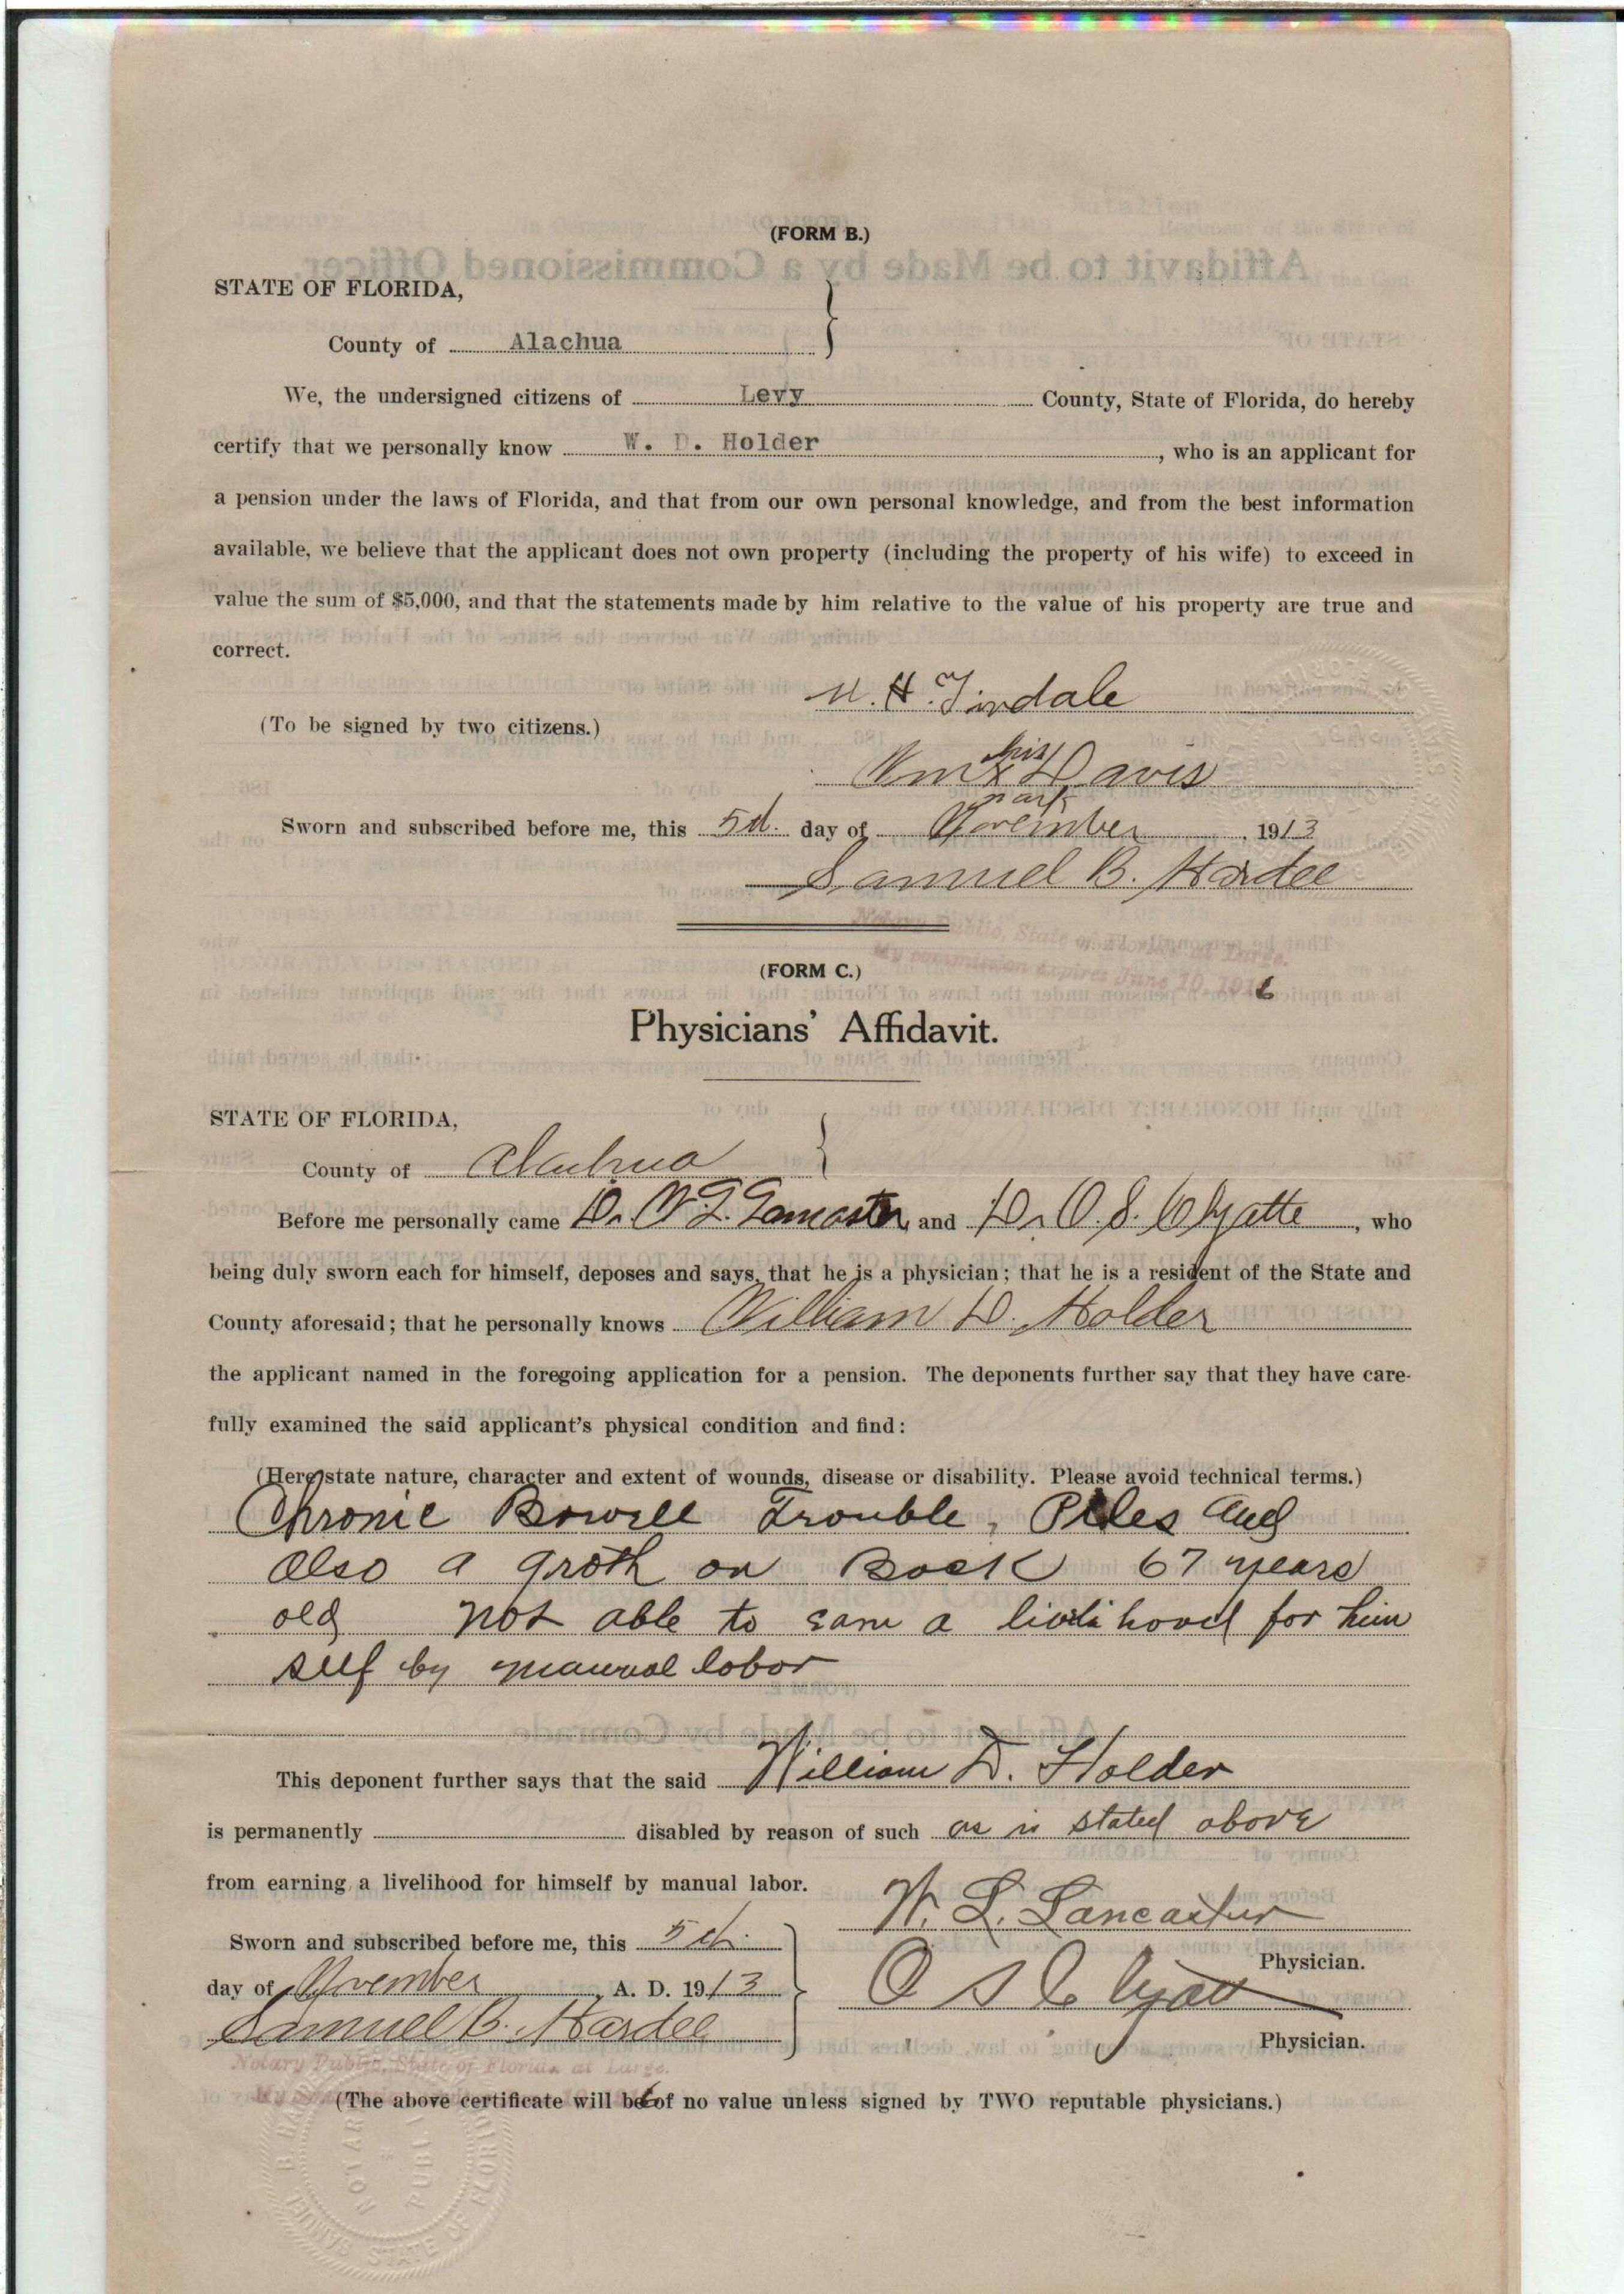 (FORM B.)
STATE OF FLORIDA,
County of Alachua
We, the undersigned citizens of Levy County, State of Florida, do hereby
certify that we personally know W. D. Holder, who is an applicant for
a pension under the laws of Florida, and that from our own personal knowledge, and from the best information
available, we believe that the applicant does not own property (including the property of his wife) to exceed in
value the sum of $5,000, and that the statements made by him relative to the value of his property are true and
correct.
H. Tindale
(To be signed by two citizens.)
his
Wm X Davis
mark
Sworn and subscribed before me, this 5th. day of November, 1913
Samuel B. Hardee
Notary Public, State of Florida at Large.
My commission expires June 10, 1916
(FORM C.)
Physicians' Affidavit.
STATE OF FLORIDA,
County of Alachua
Before me personally came Dr. W. L. Lancaster, and Dr. O. S. Clyatte, who
being duly sworn each for himself, deposes and says, that he is a physician; that he is a resident of the State and
County aforesaid; that he personally knows William D. Holder
the applicant named in the foregoing application for a pension. The deponents further say that they have care-
fully examined the said applicant's physical condition and find:
(Here state nature, character and extent of wounds, disease or disability. Please avoid technical terms.)
Chronic Bowell Trouble, Piles and
also a groth on Back 67 years
old not able to earn a livelihood for him
self by manual labor
This deponent further says that the said William D. Holder
is permanently disabled by reason of such as is stated above
from earning a livelihood for himself by manual labor.
W. L. Lancaster
Sworn and subscribed before me, this 5th.
Physician.
day of November, A. D. 1913
O S Clyatt
Samuel B. Hardee
Physician.
Notary Public, State of Florida at Large.
(The above certificate will be of no value unless signed by TWO reputable physicians.)
SAMUEL B. HARDEE
NOTARY PUBLIC
STATE OF FLORIDA